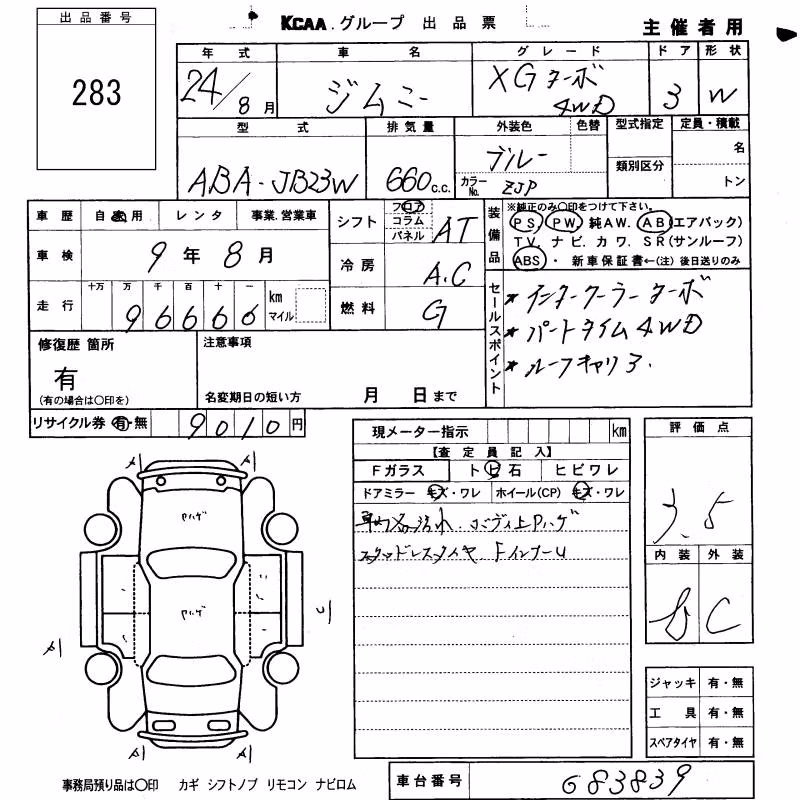 出品番号
283
KCAA.グループ 出品票
主催者用
年式 車名 グレード ドア 形状
24/8月 ジムニー XGターボ 4WD 3 W
型式 排気量 外装色 色替 型式指定 定員・積載
ABA-JB23W 660c.c. ブルー 類別区分 名
カラーNo. ZJP トン
車歴 自家用 レンタ 事業.営業車
シフト フロア コラム パネル AT
装備品 ※純正のみ〇印をつけて下さい。
PS. PW. 純AW. AB(エアバック)
TV. ナビ. カワ. SR(サンルーフ)
ABS・新車保証書←(注)後日送りのみ
車検 9年8月
冷房 A.C
走行 十万 万 千 百 十 一
96666 km マイル
燃料 G
セールスポイント
★インタークーラーターボ
★パートタイム4WD
★ルーフキャリア.
修復歴 箇所
有
(有の場合は〇印を)
注意事項
名変期日の短い方 月 日まで
リサイクル券 有・無 9010円
現メーター指示 km
【査定員記入】
Fガラス トビ石 ヒビワレ
ドアミラー キズ・ワレ ホイール(CP) キズ・ワレ
車内汚れ. ボディ上Pハゲ
スタッドレスタイヤ. FインナーU
評価点
3.5
内装 外装
C
Pハゲ
Pハゲ
ジャッキ 有・無
工具 有・無
スペアタイヤ 有・無
事務局預り品は〇印 カギ シフトノブ リモコン ナビロム
車台番号 683839